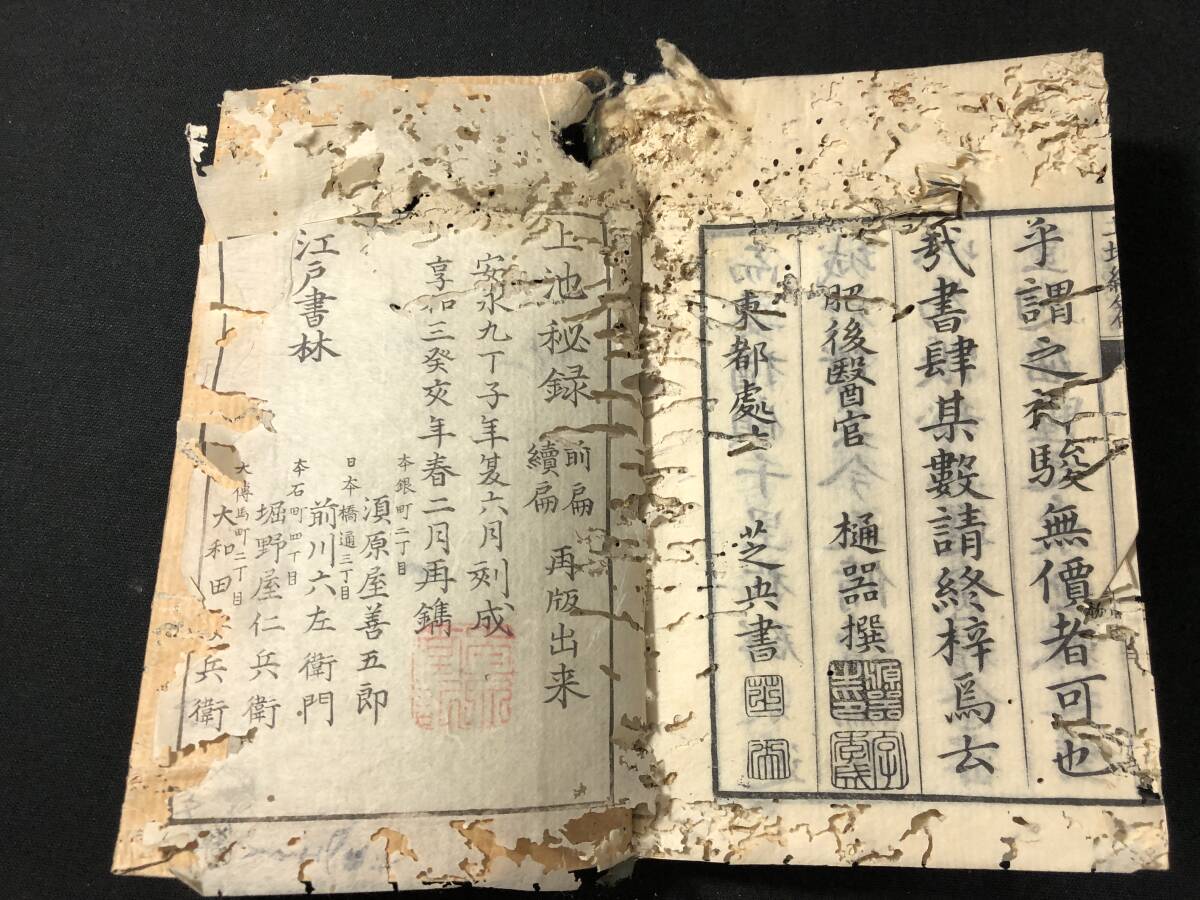 乎謂之神駿無價者可也
書肆某數請終梓焉云
肥後醫官 樋器撰
東都處士 芝典書
上池秘録 前扁 續扁 再版出来
安永九丁子年夏六月刻成
享和三癸亥年春二月再鐫
江戸書林
本銀町二丁目
須原屋善五郎
日本橋通三丁目
前川六左衛門
本石町四丁目
堀野屋仁兵衛
大傳馬町二丁目
大和田 兵衛